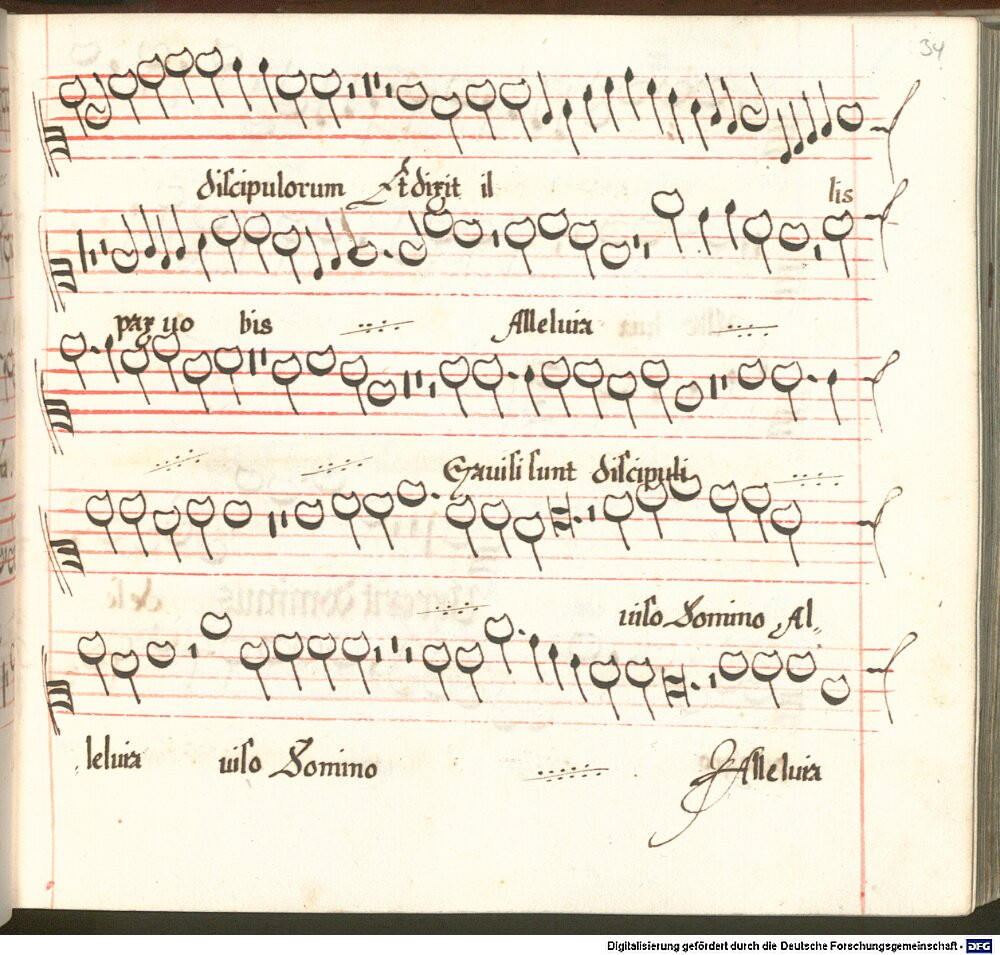 34
discipulorum Et dixit il lis
pax uo bis Alleluia
Gauisi sunt discipuli
uiso Domino Al„
„leluia uiso Domino Alleluia
Digitalisierung gefördert durch die Deutsche Forschungsgemeinschaft - DFG